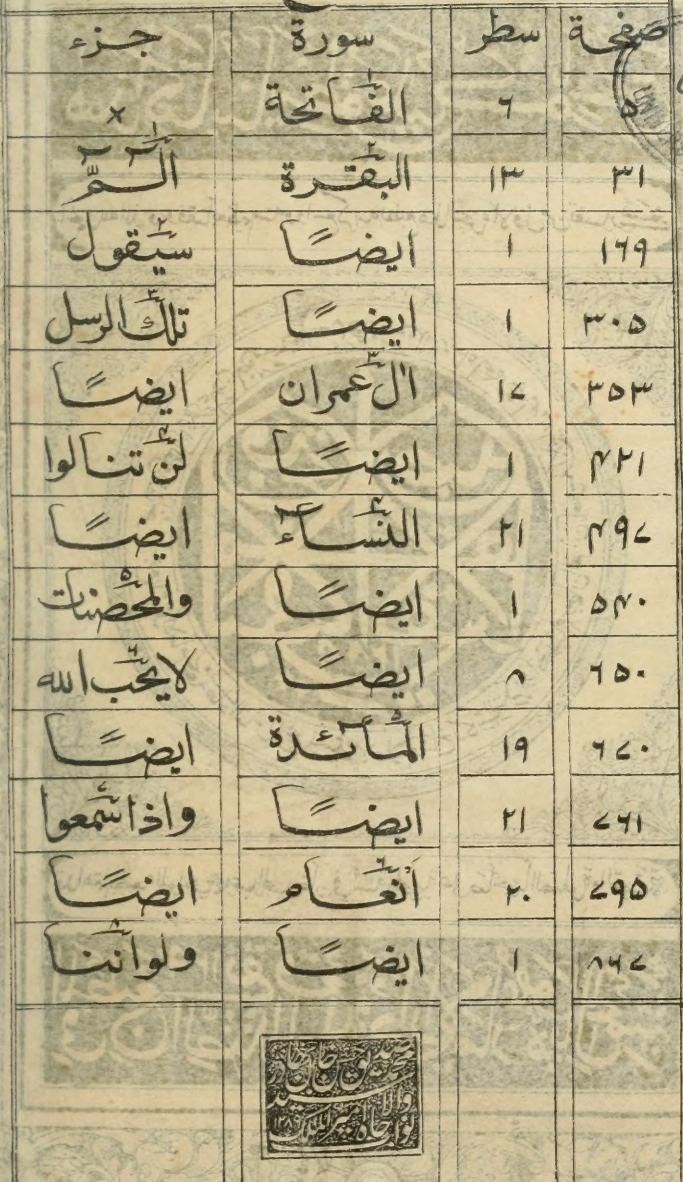 صفحة سطر سورة جزء
۵ ۶ الفاتحة ١ ×
۳۱ ۱۳ البقرة ٢ الٓمّٓ ١
۱۶۹ ۱ ايضًا سيقول ٢
۳۰۵ ۱ ايضًا تلك الرسل ٣
۳۵۳ ۱۷ اٰل عمران ٣ ايضًا
۴۲۱ ۱ ايضًا لن تنالوا ۴
۴۹۷ ۲۱ النسآء ۴ ايضًا
۵۴۰ ۱ ايضًا والمحصنات ۵
۶۵۰ ۸ ايضًا لا يحب الله ۶
۶۷۰ ۱۹ المآئدة ۵ ايضًا
۷۶۱ ۲۱ ايضًا واذا سمعوا ۷
۷۹۵ ۲۰ أنعام ۶ ايضًا
۸۶۷ ۱ ايضًا ولو اننا ۸